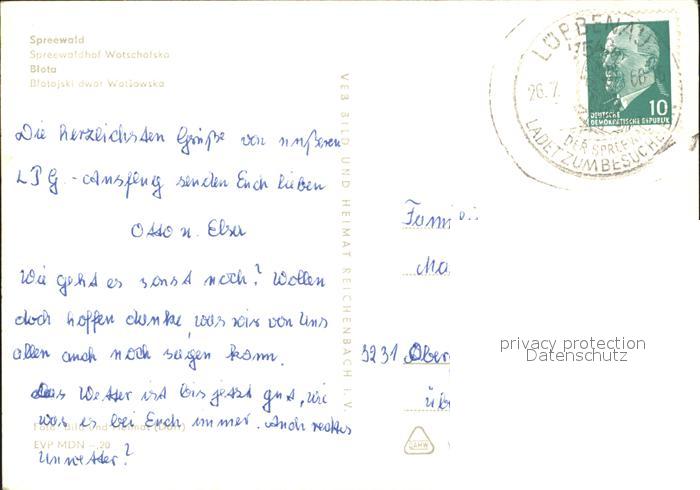 Spreewald
Spreewaldhof Wotschofska
Błota
Błotojski dwór Wotšowska
Die herzlichsten Grüße von unserem
LPG - Ausflug senden Euch lieben
Otto u. Elsa
Wie geht es sonst noch? Wollen
doch hoffen danke, was wir von Uns
allen auch noch sagen kann.
Das Wetter ist bis jetzt gut, wie
war es bei Euch immer. Auch rechtes
Unwetter?
Foto: Bild und Heimat
EVP MDN -,20
VEB BILD UND HEIMAT REICHENBACH I. V.
LÜBBENAU
26.7. 68
DER SPREEWALD
LADET ZUM BESUCHE
10
DEUTSCHE
DEMOKRATISCHE REPUBLIK
Fami
Ma
9231 Ober
üb
privacy protection
Datenschutz